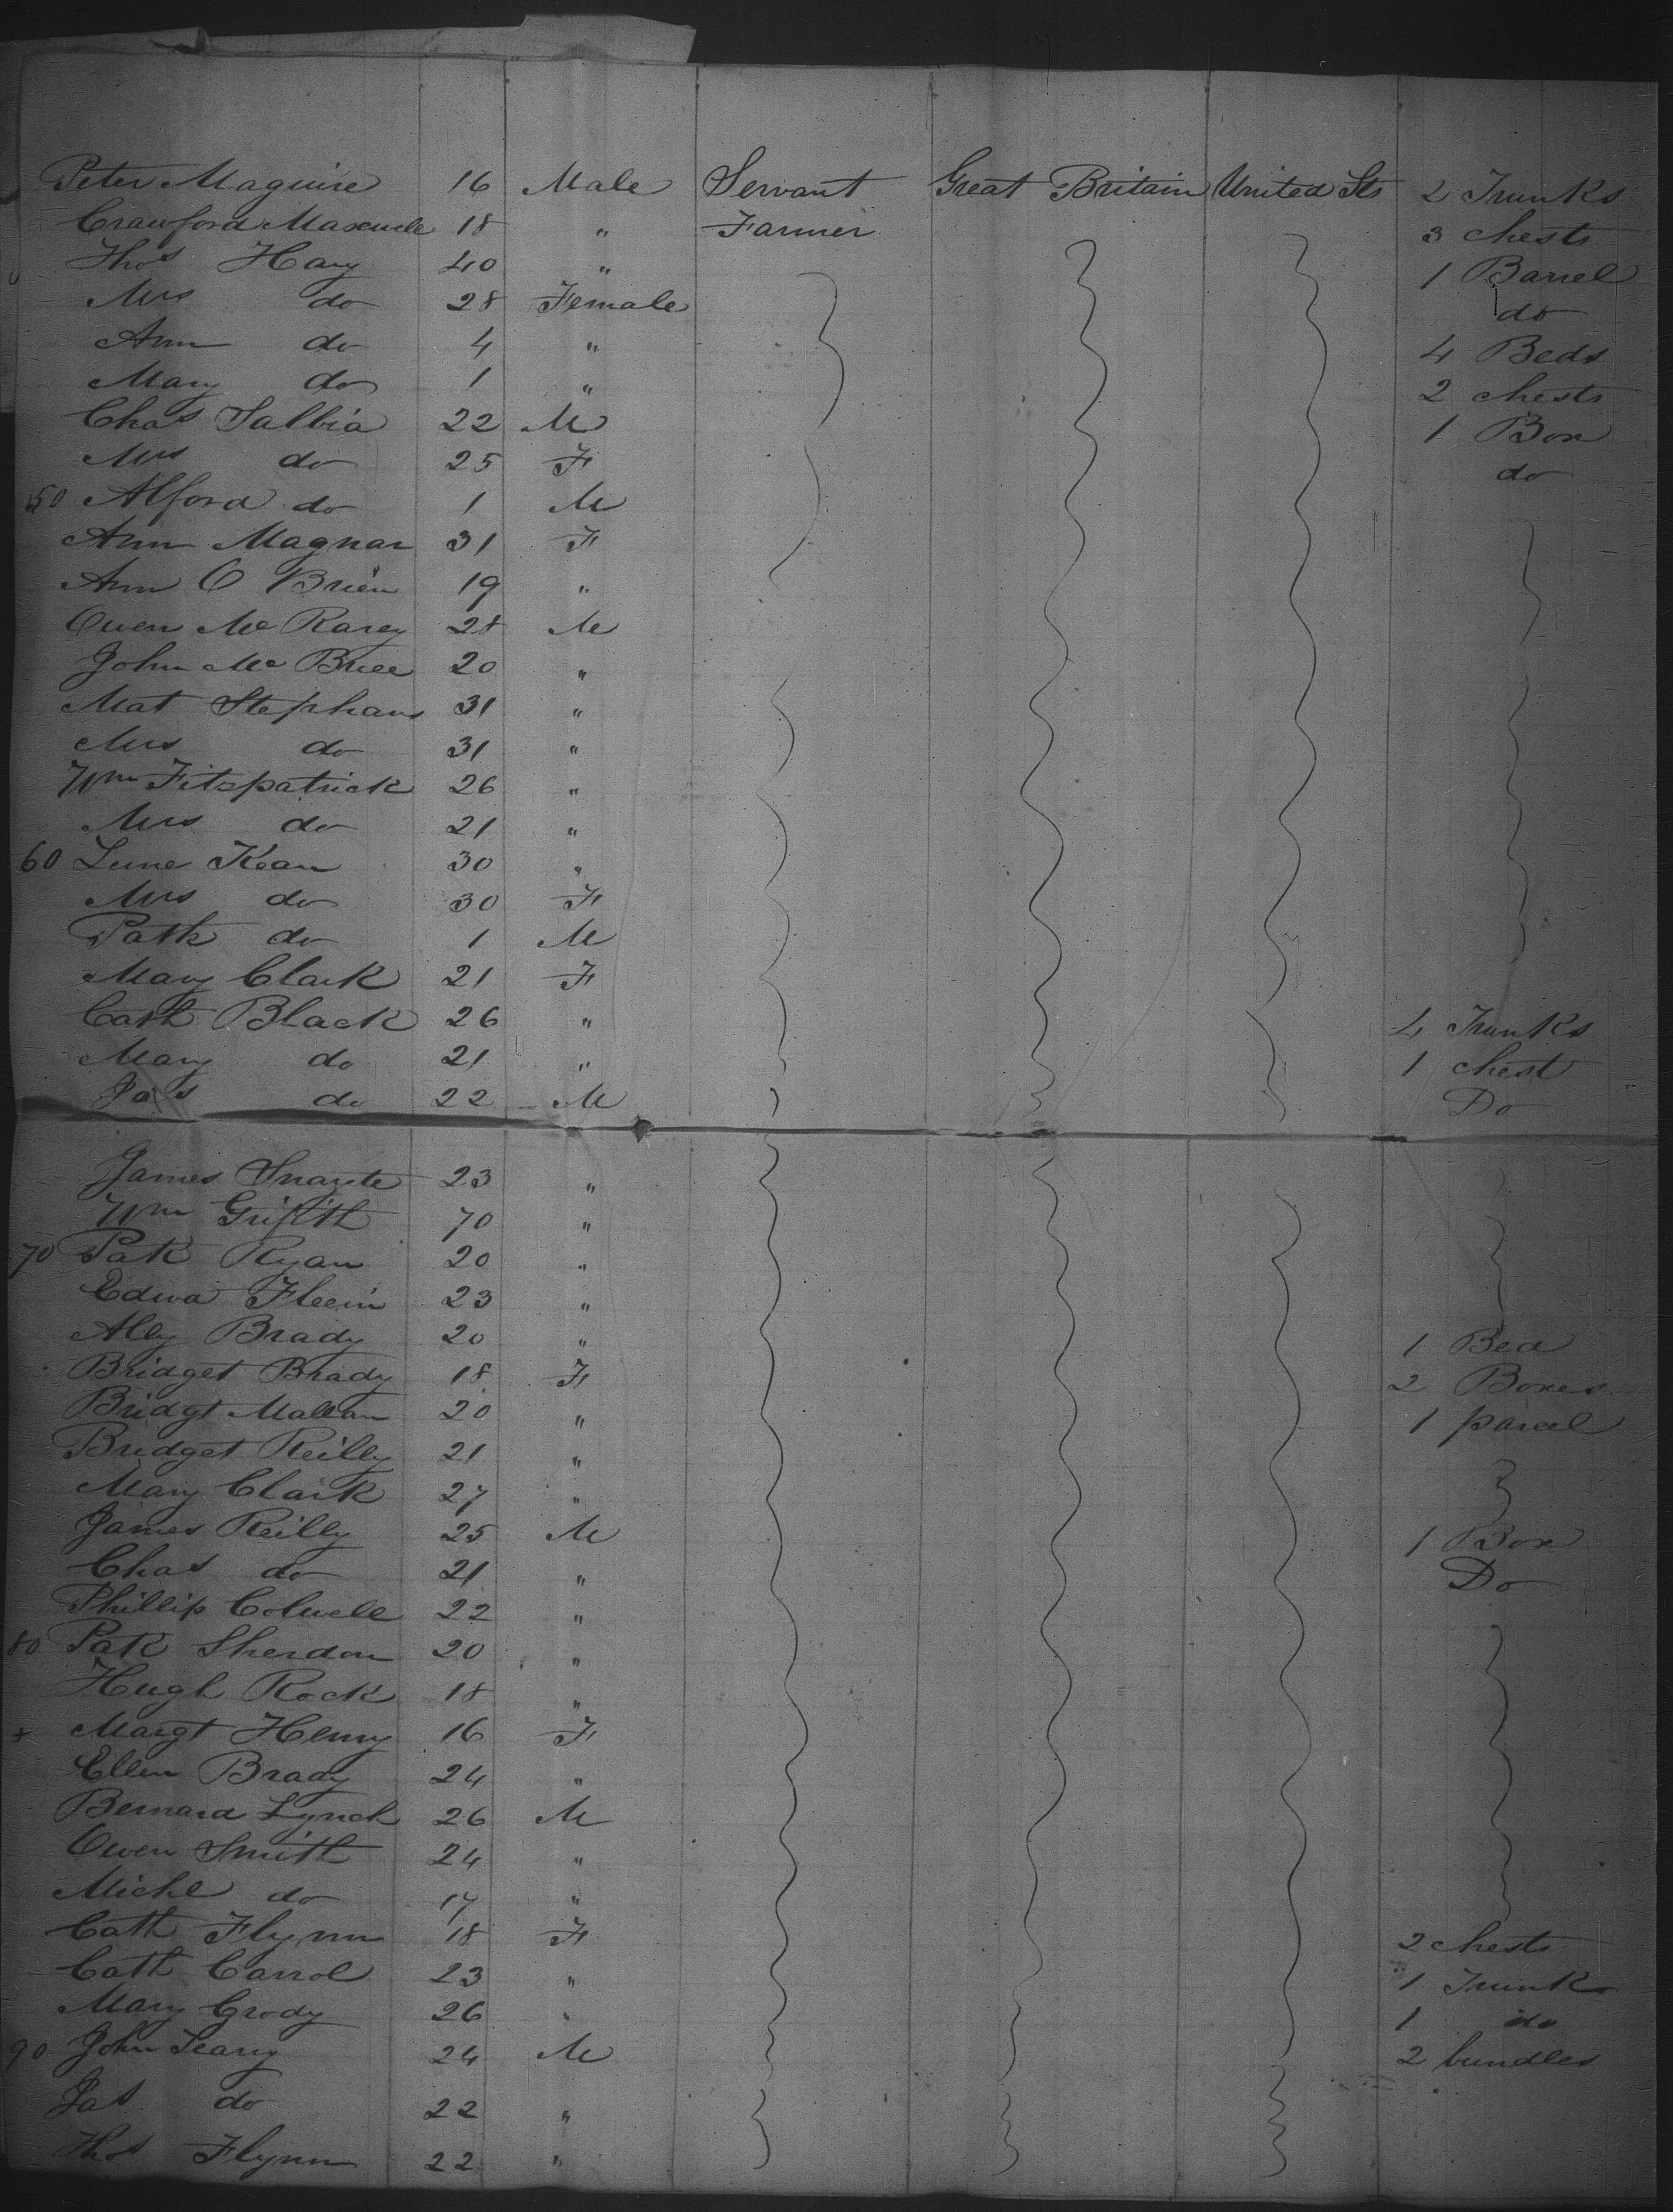 Peter Maguire 16 Male Servant Great Britain United Sts 2 Trunks
Crawford Maxwell 18 " Farmer 3 chests
Thos Hary 40 " 1 Barrel
Mrs do 28 Female do
Ann do 4 " 4 Beds
Mary do 1 " 2 chests
Chas Salbia 22 M 1 Box
Mrs do 25 F do
50 Alford do 1 M
Ann Magnar 31 F
Ann O Brien 19 "
Owen Mc Rarey 28 M
John Mc Bree 20 "
Mat Stephans 31 "
Mrs do 31 "
Wm Fitzpatrick 26 "
Mrs do 21 "
60 Kean 30 "
Mrs do 30 F
Patk do 1 M
Mary Clark 21 F
Cath Black 26 " 4 Trunks
Mary do 21 " 1 chest
Jas do 22 M Do
James 23 "
Wm Grifith 70 "
70 Patk Ryan 20 "
Edwd 23 "
Ally Brady 20 " 1 Bed
Bridget Brady 18 F 2 Boxes
Bridgt Mallan 20 " 1 parcel
Bridget Reilly 21 "
Mary Clark 27 "
James Reilly 25 M 1 Box
Chas do 21 " Do
Phillip Colwell 22 "
80 Patk Sherdon 20 "
Hugh Rock 18 "
x Margt Henry 16 F
Ellen Brady 24 "
Bernard Lynch 26 M
Owen Smith 24 "
Michl do 17 "
Cath Flynn 18 F 2 chests
Cath Carrol 23 " 1 Trunk
Mary Crody 26 " 1 do
90 John Leary 24 M 2 bundles
Jas do 22 "
Thos Flynn 22 "